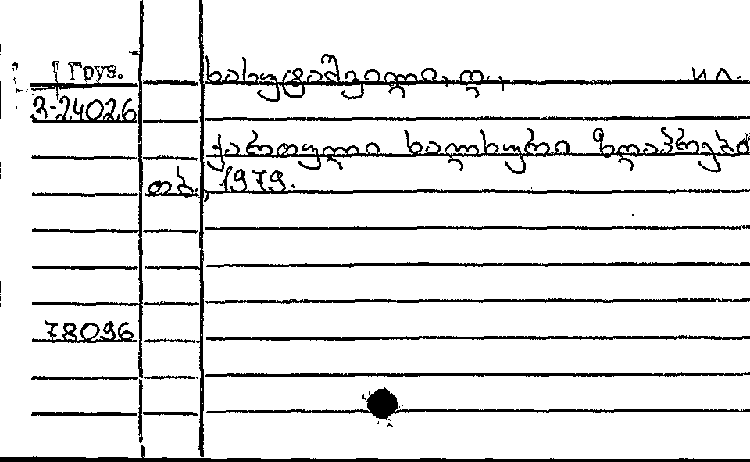 Груз. ხახუტაშვილი, დ., ил.
3-24026
ქართული ხალხური ზღაპრები
თბ., 1979.
78096